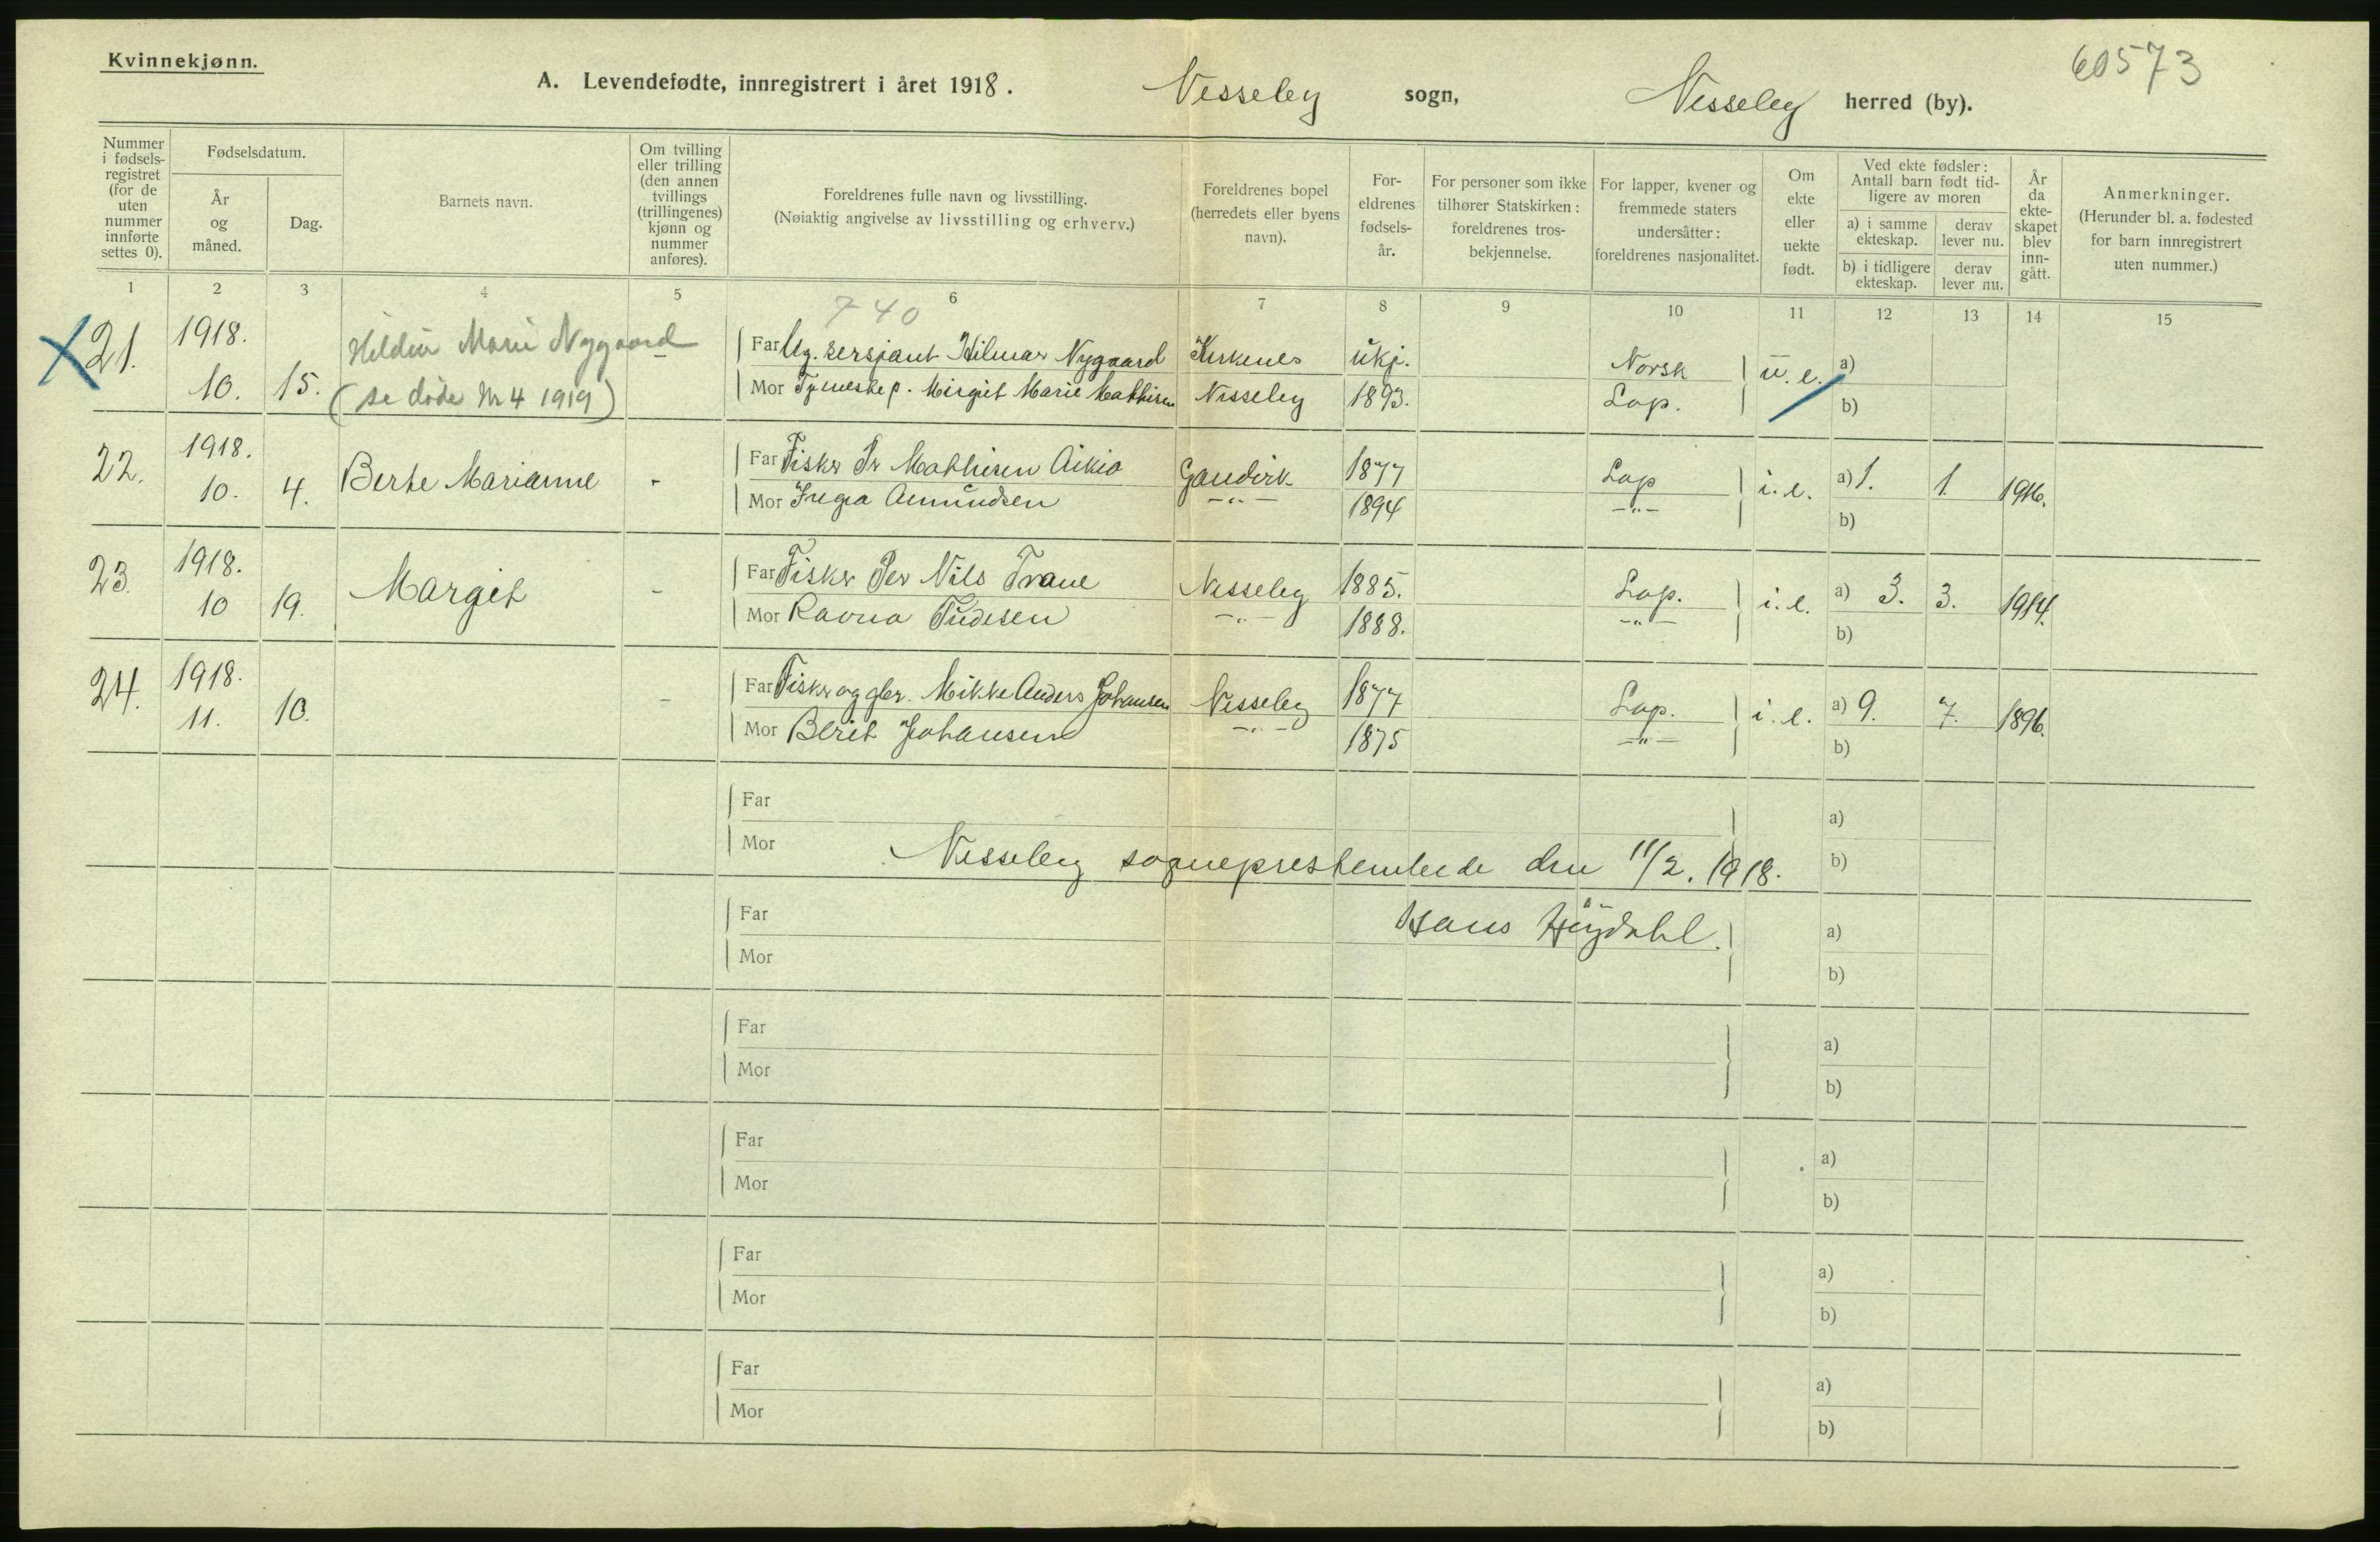 Kvinnekjønn.
60573
A. Levendefødte, innregistrert i året 1918. Nesseby sogn, Nesseby herred (by).
Nummer i fødsels-registret (for de uten nummer innførte settes 0).
Fødselsdatum.
År og måned.
Dag.
Barnets navn.
Om tvilling eller trilling (den annen tvillings (trillingenes) kjønn og nummer anføres).
Foreldrenes fulle navn og livsstilling.
(Nøiaktig angivelse av livsstilling og erhverv.)
Foreldrenes bopel (herredets eller byens navn).
For-eldrenes fødsels-år.
For personer som ikke tilhører Statskirken: foreldrenes tros-bekjennelse.
For lapper, kvener og fremmede staters undersåtter: foreldrenes nasjonalitet.
Om ekte eller uekte født.
Ved ekte fødsler: Antall barn født tid-ligere av moren
a) i samme ekteskap.
derav lever nu.
b) i tidligere ekteskap.
derav lever nu.
År da ekte-skapet blev inn-gått.
Anmerkninger.
(Herunder bl. a. fødested for barn innregistrert uten nummer.)
1 2 3 4 5 6 7 8 9 10 11 12 13 14 15
740
X 21. 1918. Marie Nygaard - Far Ug. sersjant Hilmar Nygaard Kirkenes ukj. Norsk u. e. a)
10. 15. (se døde Nr 4 1919) Mor Margit Marie Mathisen Nesseby 1893. Lap. b)
22. 1918. Berte Marianne - Far Fisker Pr Mathisen Aikio Gandvik 1877 Lap i. e. a) 1. 1. 1916.
10. 4. Mor Inga Amundsen -"- 1894 -"- b)
23. 1918. Margit - Far Fisker Per Nils Trane Nesseby 1885. Lap. i. e. a) 3. 3. 1914.
10 19. Mor Ravna Tudesen -"- 1888. -"- b)
24. 1918. - Far Fisker og gbr. Mikke Anders Johansen Nesseby 1877 Lap. i. e. a) 9. 7. 1896.
11. 10. Mor Berit Johansen -"- 1875 -"- b)
Far a)
Mor b)
Nesseby sogneprestembede den 11/2. 1918.
Far Hans Høydahl. a)
Mor b)
Far a)
Mor b)
Far a)
Mor b)
Far a)
Mor b)
Far a)
Mor b)